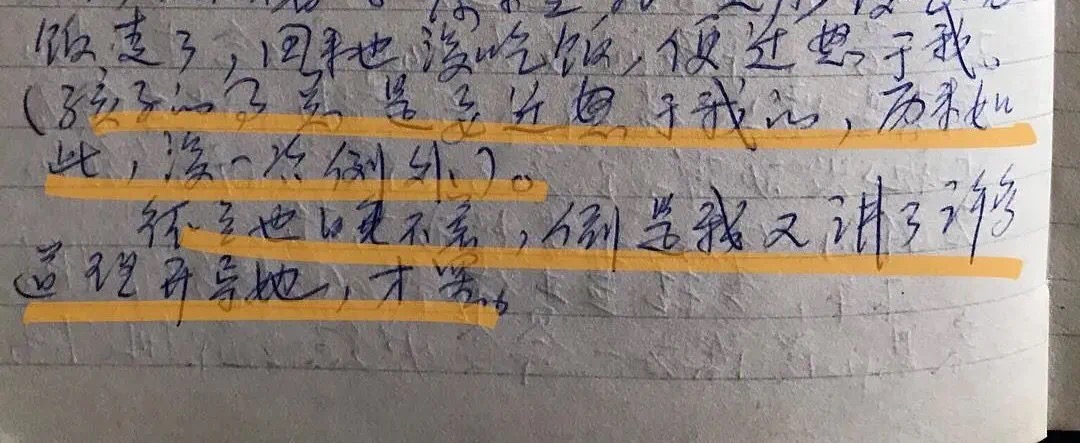 饭走了,回来也没吃饭,便迁怒于我。
(孩子的事总是要迁怒于我的,历来如
此,没一次例外。)。
也睡不实,倒是我又讲了许多
道理开导她,才罢。